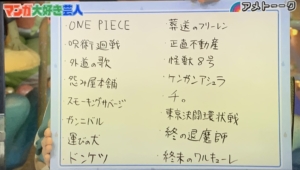 マンガ大好き芸人
アメトーーク
ONE PIECE
呪術廻戦
外道の歌
怨み屋本舗
スモーキングサベージ
ガンニバル
運びの犬
ドンケツ
葬送のフリーレン
正直不動産
怪獣8号
ケンガンアシュラ
チ。
東京決闘環状戦
終の退魔師
終末のワルキューレ